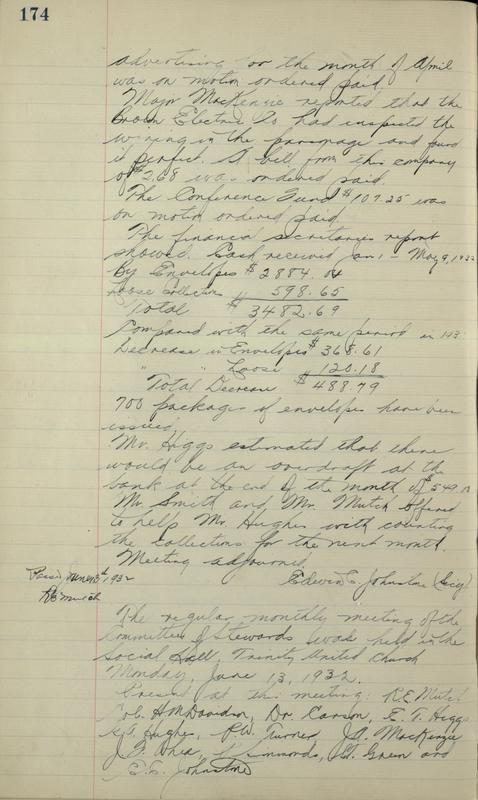 174
advertising for the month of April
was on motion ordered paid.
Major MacKenzie reported that the
Brown Electric Co had inspected the
wiring in the parsonage and found
it perfect. A bill from this company
of $2.68 was ordered paid.
The Conference Fund $107.25 was
on motion ordered paid.
The financial secretaries report
showed. Cash received Jan 1 - May 9, 1932
By Envelopes $2884.04
Loose Collections 598.65
Total $3482.69
Compared with the same period in 193
Decrease in Envelopes $368.61
" " Loose $120.18
"Total Decrease $488.79
700 packages of envelopes have been
issued.
Mr. Higgs estimated that there
would be an overdraft at the
bank at the end of the month of $549.
Mr. Smith and Mr. Mutch offered
to help Mr. Hughes with counting
the collections for the next month.
Meeting adjourned.
June 13th, 1932
Edwin C. Johnstone (Secy)
RE Mutch
The regular monthly meeting of the
Committee of Stewards was held in the
Social Hall, Trinity United Church
Monday, June 13, 1932.
Present at this meeting: R.E. Mutch
Col. H.M. Davidson, Dr. Carson, E.T. Higgs
Hughes, R.W. Turner, J.A. MacKenzie
J.P. Simmonds, Green and
E.C. Johnstone